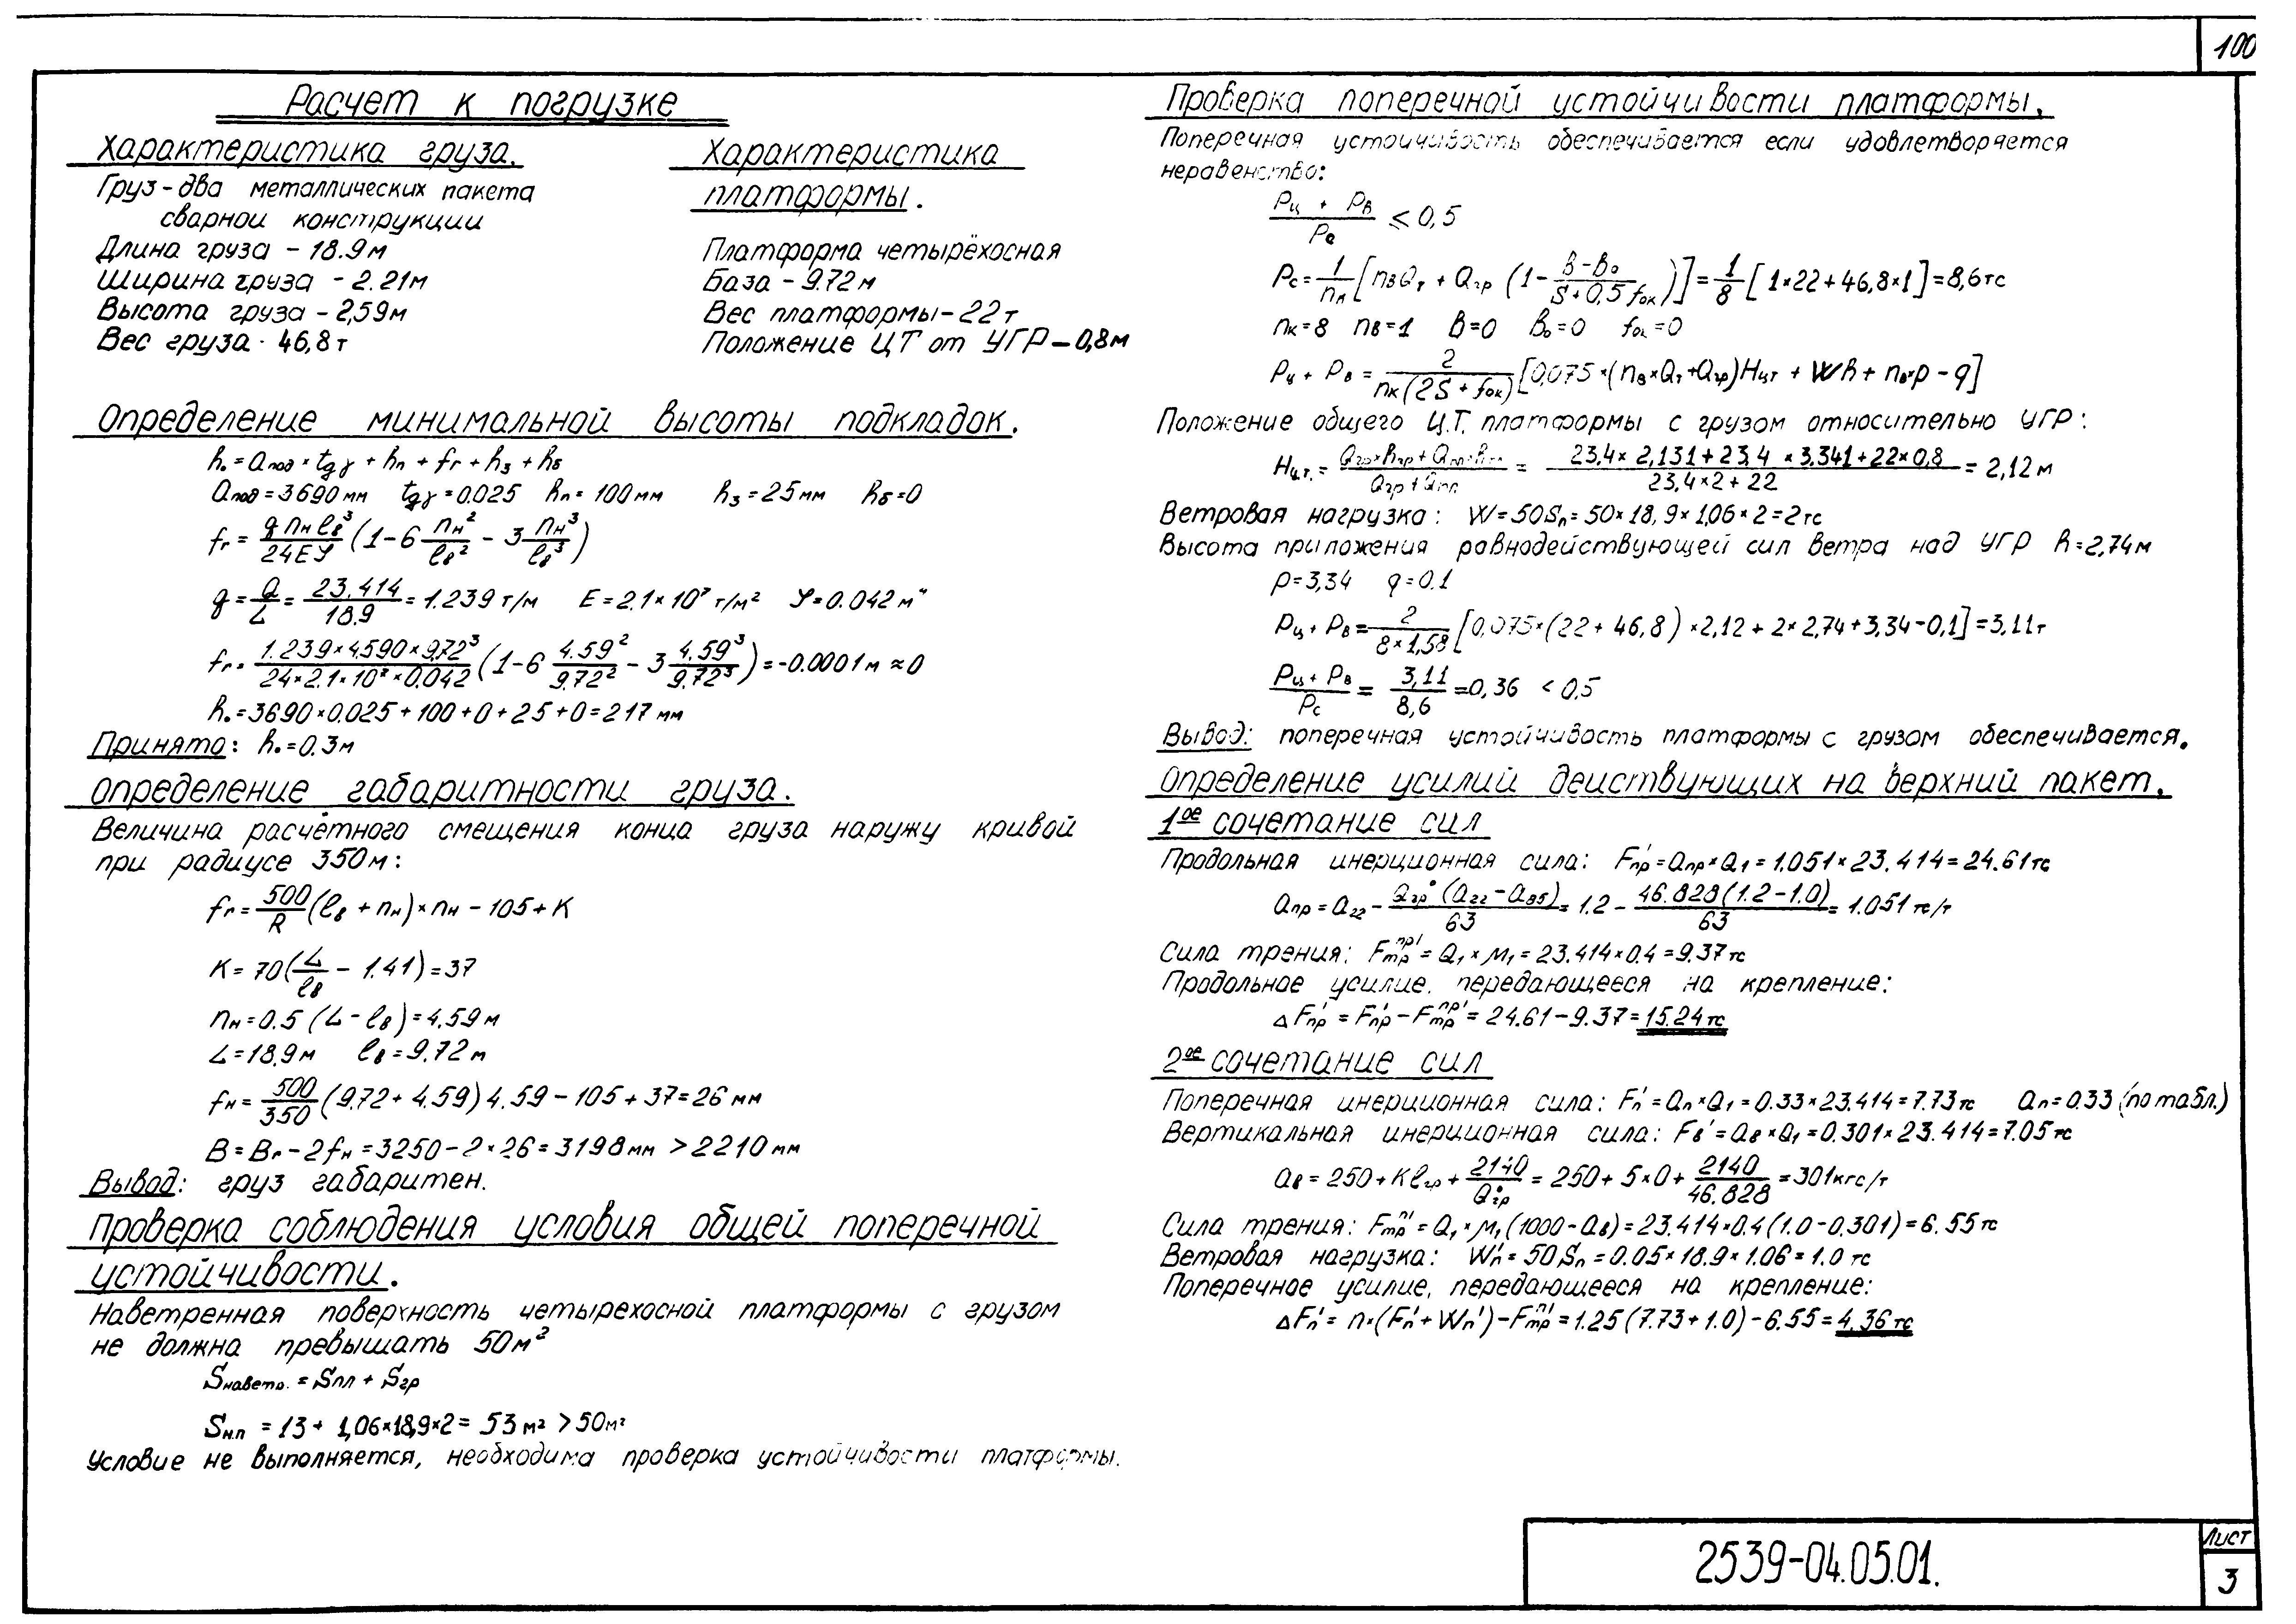 100
Расчет к погрузке
Характеристика груза.
Груз - два металлических пакета
сварной конструкции
Длина груза - 18.9 м
Ширина груза - 2.21м
Высота груза - 2,59м
Вес груза - 46,8 т
Характеристика
платформы.
Платформа четырёхосная
База - 9.72 м
Вес платформы - 22 т
Положение ЦТ от УГР - 0,8м
Определение минимальной высоты подкладок.
h₀ = aпод × tgγ + hп + fг + hз + hб
aпод = 3690 мм tgγ = 0.025 hп = 100 мм hз = 25 мм hб = 0
fг = q nн ℓв³ / 24EJ (1 - 6 nн²/ℓв² - 3 nн³/ℓв³)
q = Q/L = 23.414/18.9 = 1.239 т/м E = 2.1 × 10⁷ т/м² J = 0.042 м⁴
fг = 1.239 × 4.590 × 9.72³ / 24 × 2.1 × 10⁷ × 0.042 (1 - 6 4.59²/9.72² - 3 4.59³/9.72³) = -0.0001 м ≈ 0
h₀ = 3690 × 0.025 + 100 + 0 + 25 + 0 = 217 мм
Принято: h₀ = 0.3 м
Определение габаритности груза.
Величина расчётного смещения конца груза наружу кривой
при радиусе 350 м:
fг = 500/R (ℓв + nн) × nн - 105 + K
K = 70 (L/ℓв - 1.41) = 37
nн = 0.5 (L - ℓв) = 4.59 м
L = 18.9 м ℓв = 9.72 м
fн = 500/350 (9.72 + 4.59) 4.59 - 105 + 37 = 26 мм
B = Bг - 2fн = 3250 - 2 × 26 = 3198 мм > 2210 мм
Вывод: груз габаритен.
Проверка соблюдения условия общей поперечной
устойчивости.
Наветренная поверхность четырехосной платформы с грузом
не должна превышать 50 м²
Sнаветр. = Sпл + Sгр
Sн.п = 13 + 1,06×18,9×2 = 53 м² > 50 м²
Условие не выполняется, необходима проверка устойчивости платформы.
Проверка поперечной устойчивости платформы.
Поперечная устойчивость обеспечивается если удовлетворяется
неравенство:
Pц + Pв / Pс ≤ 0,5
Pс = 1/nк [nвQт + Qгр (1 - B - B₀ / S + 0,5 fок)] = 1/8 [1×22 + 46,8×1] = 8,6тс
nк = 8 nв = 1 B = 0 B₀ = 0 fок = 0
Pц + Pв = 2 / nк (2S + fок) [0,075 × (nв×Qт + Qгр)Hцт + Wh + nв×p - q]
Положение общего Ц.Т. платформы с грузом относительно УГР:
Hц.т. = Qгр×hгр + Qпл×hпл / Qгр + Qпл = 23.4 × 2,131 + 23,4 × 3.341 + 22×0,8 / 23,4×2 + 22 = 2,12 м
Ветровая нагрузка: W = 50Sп = 50×18,9×1,06×2 = 2тс
Высота приложения равнодействующей сил ветра над УГР h = 2,74 м
p = 3,34 q = 0.1
Pц + Pв = 2 / 8×1,58 [0,075×(22 + 46,8) ×2,12 + 2×2,74 + 3,34 - 0,1] = 3,11т
Pц + Pв / Pс = 3,11/8,6 = 0,36 < 0.5
Вывод: поперечная устойчивость платформы с грузом обеспечивается.
Определение усилий действующих на верхний пакет.
1ое сочетание сил
Продольная инерционная сила: F'пр = aпр × Q₁ = 1.051 × 23.414 = 24.61тс
aпр = a₂₂ - Q°гр (a₂₂ - a₈₅) / 63 = 1.2 - 46.828 (1.2 - 1.0) / 63 = 1.051 тс/т
Сила трения: Fтр^пр' = Q₁ × м₁ = 23.414×0.4 = 9.37 тс
Продольное усилие, передающееся на крепление:
ΔF'пр = F'пр - Fтр^пр' = 24.61 - 9.37 = 15.24 тс
2ое сочетание сил
Поперечная инерционная сила: F'п = aп × Q₁ = 0.33×23.414 = 7.73 тс aп = 0.33 (по табл.)
Вертикальная инерционная сила: Fв' = aв×Q₁ = 0.301×23.414 = 7.05 тс
aв = 250 + Kℓгр + 2140/Q°гр = 250 + 5×0 + 2140/46.828 = 301кгс/т
Сила трения: Fтр^п' = Q₁ × м₁ (1000 - aв) = 23.414×0.4 (1.0 - 0.301) = 6.55 тс
Ветровая нагрузка: W'п = 50Sп = 0.05×18.9×1.06 = 1.0 тс
Поперечное усилие, передающееся на крепление:
ΔFп' = n×(Fп' + Wп') - Fтр^п' = 1.25 (7.73 + 1.0) - 6.55 = 4.36 тс
2539-04.05.01.
Лист
3